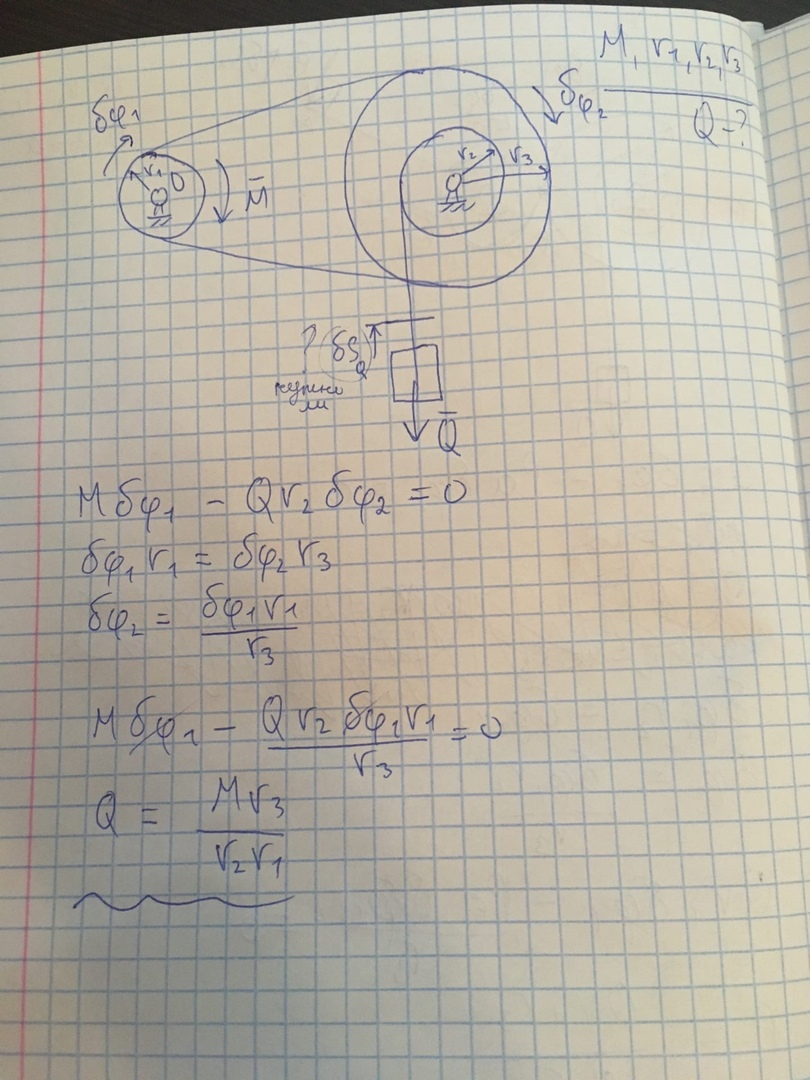 M, r₁, r₂, r₃
Q - ?
δφ₁
r₁
O
M̄
r₂
r₃
δφ₂
?
δS_Q
нужно
ли
Q̄
Mδφ₁ - Qr₂δφ₂ = 0
δφ₁r₁ = δφ₂r₃
δφ₂ = δφ₁r₁ / r₃
Mδφ₁ - Qr₂δφ₁r₁ / r₃ = 0
Q = Mr₃ / r₂r₁